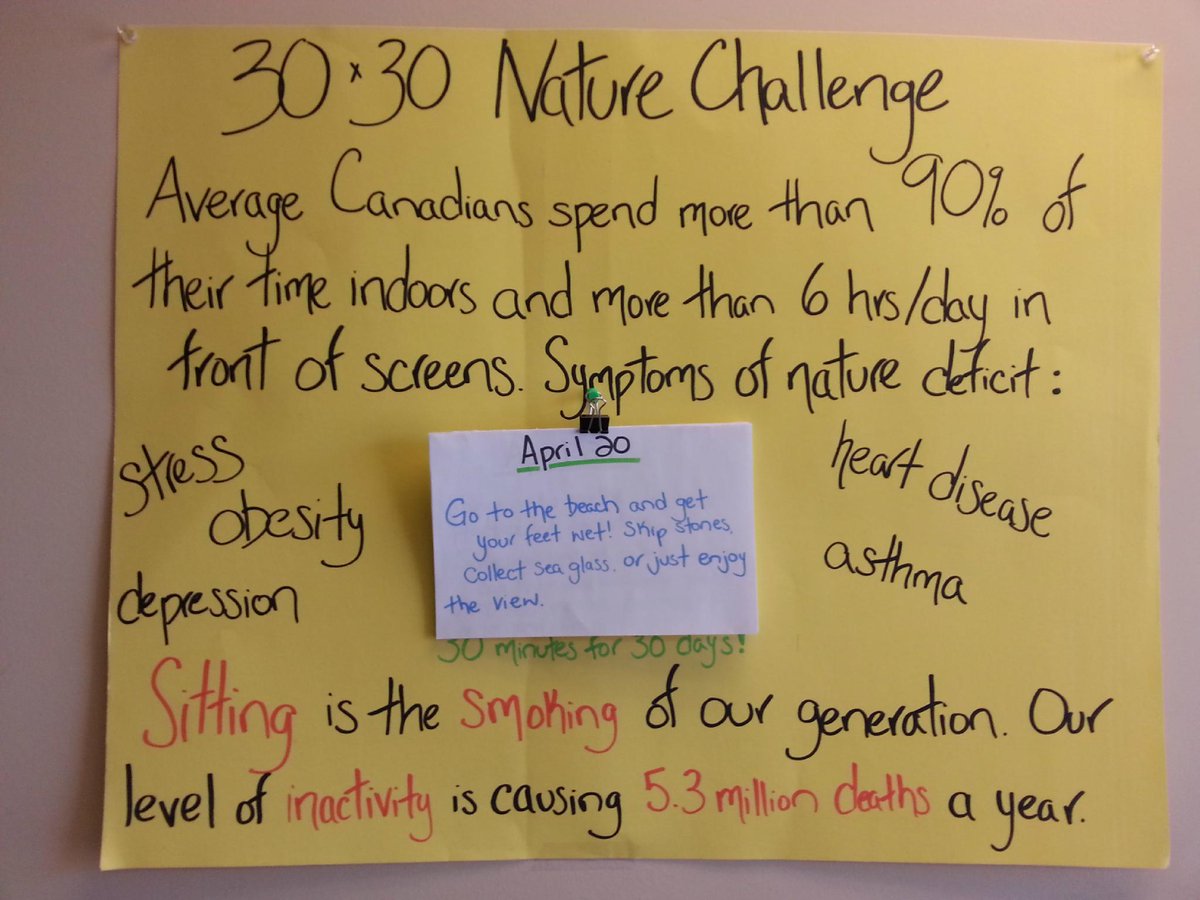 30 x 30 Nature Challenge
Average Canadians spend more than 90% of
their time indoors and more than 6 hrs/day in
front of screens. Symptoms of nature deficit:
stress
obesity
depression
heart disease
asthma
April 20
Go to the beach and get
your feet wet! Skip stones,
collect sea glass, or just enjoy
the view.
30 minutes for 30 days!
Sitting is the smoking of our generation. Our
level of inactivity is causing 5.3 million deaths a year.